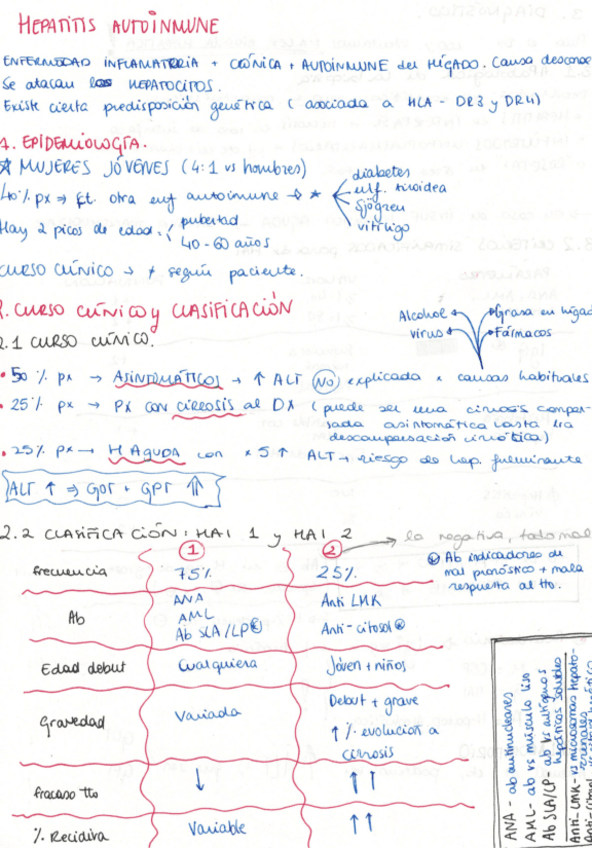 HEPATITIS AUTOINMUNE
ENFERMEDAD INFLAMATORIA + CRÓNICA + AUTOINMUNE del HÍGADO. Causa descono
Se atacan los HEPATOCITOS.
Existe cierta predisposición genética (asociada a HLA - DR3 y DR4)
1. EPIDEMIOLOGÍA.
MUJERES JÓVENES (4:1 vs hombres)
40% px → Et. otra enf autoinmune → *
diabetes
enf. tiroidea
Sjögren
vitíligo
Hay 2 picos de edad:
pubertad
40-60 años
CURSO CLÍNICO → ≠ según paciente.
2. CURSO CLÍNICO y CLASIFICACIÓN
Alcohol
Grasa en hígad
virus
Fármacos
2.1 CURSO CLÍNICO.
• 50 % px → ASINTOMÁTICOS → ↑ ALT (NO) explicada x causas habituales
• 25% px → PX con CIRROSIS al DX (puede ser una cirrosis compen-
sada asintomática hasta la
descompensación cirrótica)
• 25% px → H AGUDA con x5 ↑ ALT → riesgo de hep. fulminante
ALT ↑ ⇒ GOT + GPT ⇑
2.2 CLASIFICACIÓN: HAI 1 y HAI 2
→ la negativa, todo mal
1 2
frecuencia 75% 25%
⊗ Ab indicadores de
mal pronóstico + mala
respuesta al tto.
Ab
ANA
AML
Ab SLA/LP ⊗
Anti LMK
Anti-citosol ⊗
Edad debut Cualquiera Jóven + niños
Gravedad Variada
Debut + grave
↑ % evolución a
cirrosis
fracaso tto ↓ ↑↑
% Recidiva Variable ↑↑
ANA - ab antinucleares
AML - ab vs músculo liso
Ab SLA/LP - ab vs antígenos
hepáticos solubles
Anti-LMK - vs microsomas hepato-
renales